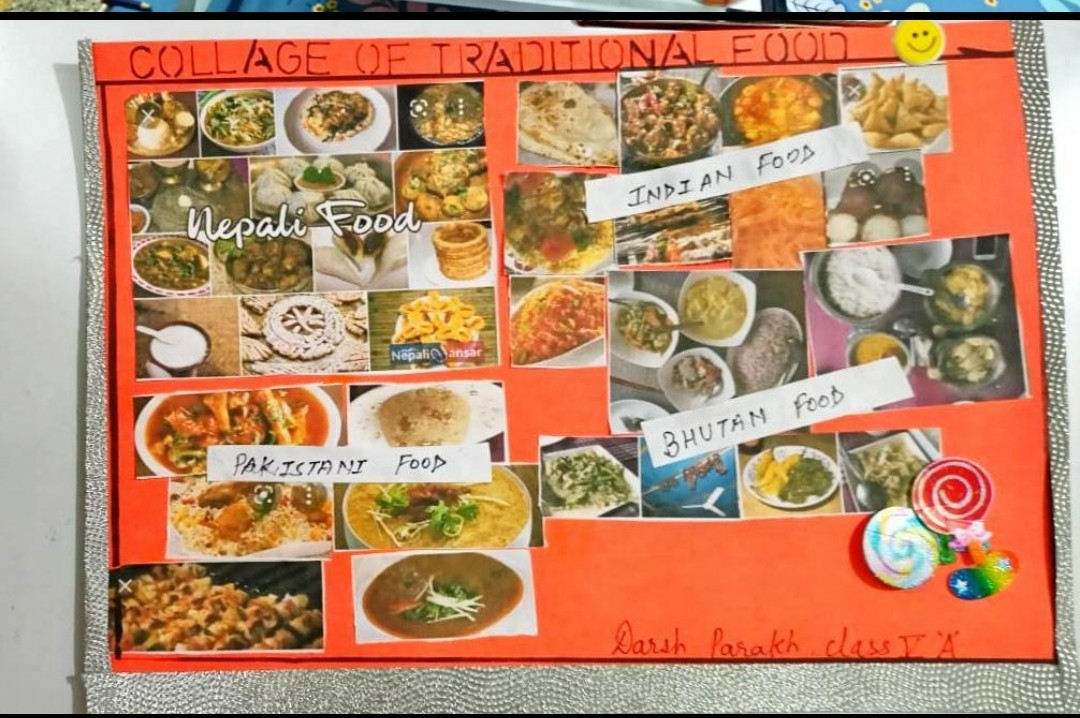 COLLAGE OF TRADITIONAL FOOD
Nepali Food
Nepali ansar
INDIAN FOOD
BHUTAN FOOD
PAKISTANI FOOD
Darsh Parakh. class V 'A'